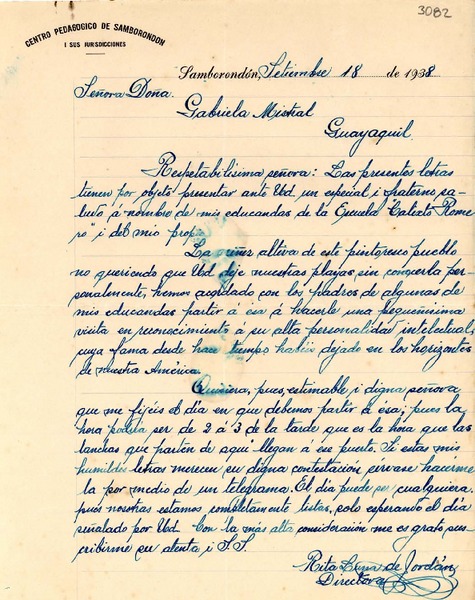 3082
CENTRO PEDAGOGICO DE SAMBORONDON
I SUS JURISDICCIONES
Samborondón, Setiembre 18 de 1938
Señora Doña.
Gabriela Mistral
Guayaquil.
Respetabilísima señora: Las presentes letras
tienen por objeto presentar ante Ud un especial i fraterno sa-
ludo á nombre de mis educandas de la Escuela "Calixto Rome
ro" i del mío propio.
La niñez altiva de este pintoresco pueblo
no queriendo que Ud deje nuestras playas sin conocerla per-
sonalmente, hemos acordado con los padres de algunas de
mis educandas partir á esa á hacerle una pequeñísima
visita en reconocimiento á su alta personalidad intelectual,
cuya fama desde hace tiempo habéis dejado en los horizontes
de nuestra América.
Quisiera, pues, estimable i digna señora
que me fijéis el día en que debemos partir á ésa; pues la
hora podría ser de 2 á 3 de la tarde que es la hora que las
lanchas que parten de aquí llegan á ese puerto. Si estas mis
humildes letras merecen su digna contestación sírvase hacérme
la por medio de un telegrama. El día puede ser cualquiera,
pués nosotras estamos completamente listas, solo esperando el día
señalado por Ud. Con la más alta consideración me es grato sus-
cribirme su atenta i S.S.
Rita Luna de Jordán
Directora